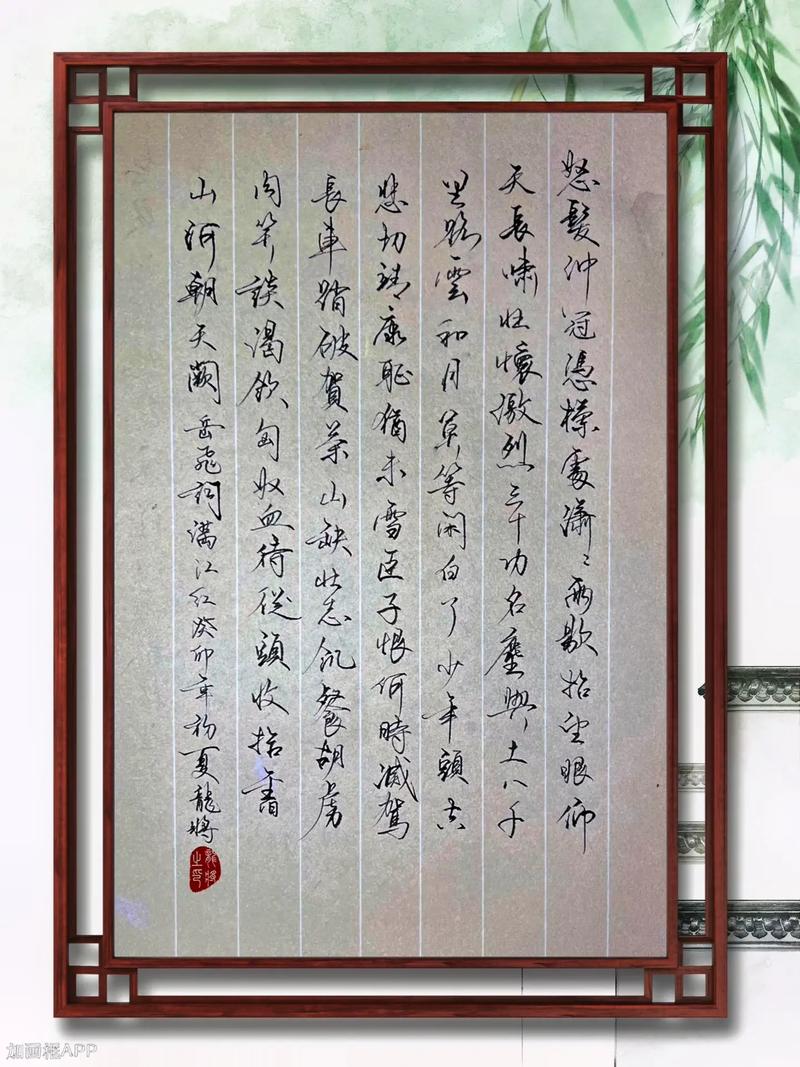 怒髮沖冠憑欄處瀟〻雨歇抬望眼仰
天長嘯壯懷激烈三十功名塵與土八千
里路雲和月莫等閑白了少年頭空
悲切靖康恥猶未雪臣子恨何時滅駕
長車踏破賀蘭山缺壯志飢餐胡虜
肉笑談渴飲匈奴血待從頭收拾舊
山河朝天闕 岳飛詞滿江紅癸卯年初夏龍將
龍將之印
加画框APP